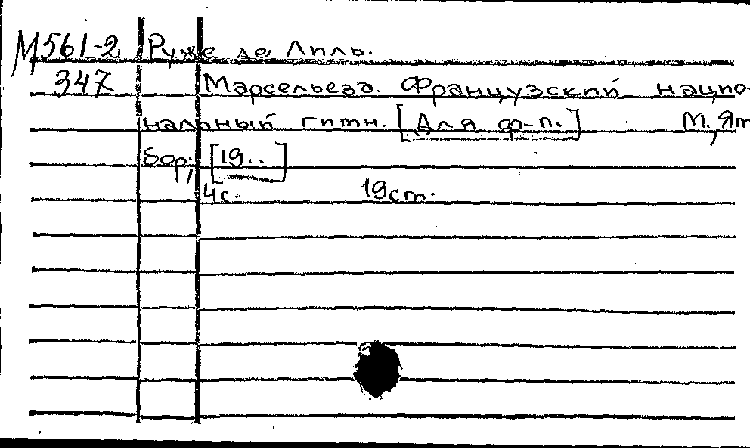 М561-2 Руже де Лиль.
347 Марсельеза. Французский нацио-
нальный гимн. [Для ф-п.] М, Ям
бор, [19..]
4с. 19ст.